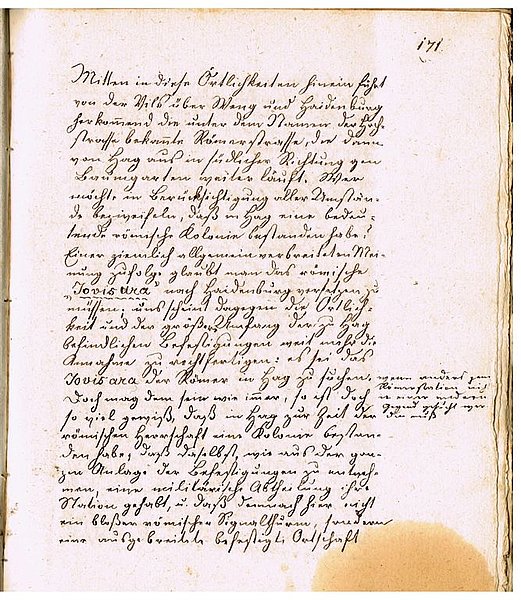 171.
Mitten in diese Örtlichkeiten hinein führt
von der Vils über Weng und Haidenburg
herkommend die unter dem Namen der Hoch-
strasse bekannte Römerstrasse, die dann
von Hag aus in südlicher Richtung gen
Baumgarten weiter läuft. Wer
möchte in Berücksichtigung aller Umstän-
de bezweifeln, daß in Hag eine bedeu-
tende römische Kolonie bestanden habe?
Einer ziemlich allgemein verbreiteten Mei-
nung zufolge glaubt man das römische
„Jovisara" nach Haidenburg versetzen zu
müssen; uns scheint dagegen die Örtlich-
keit und der große Umfang der zu Hag
befindlichen Befestigungen weit mehr die
Annahme zu rechtfertigen: es sei das
Jovisara der Römer in Hag zu suchen, wenn anders
Römerstation nicht
Doch mag dem sein wie immer, so ist doch in einer andern
so viel gewiß, daß in Hag zur Zeit der Gegend gesucht wer
den muß
römischen Herrschaft eine Kolonie bestan-
den habe, daß daselbst, wie aus der gan-
zen Anlage der Befestigungen zu entneh-
men, eine militärische Abtheilung ihre
Station gehabt, u. daß demnach hier nicht
ein bloßer römischer Signalthurm, sondern
eine ausgebreitete befestigte Ortschaft